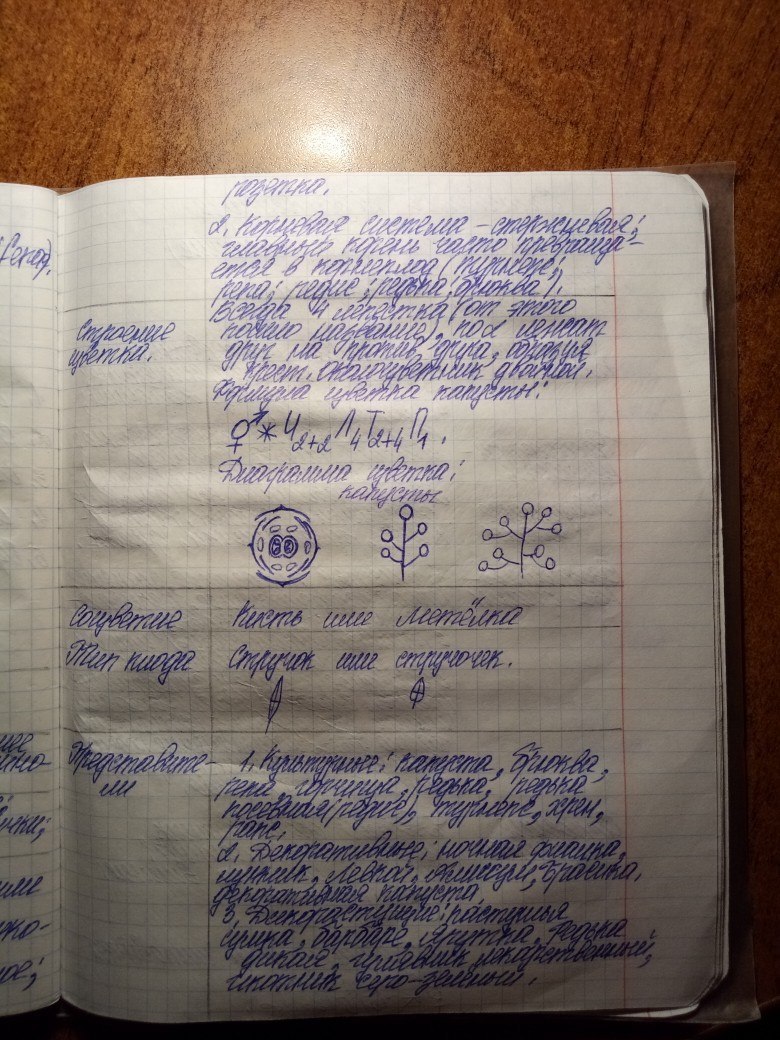 розетка.
2. Корневая система - стержневая;
главный корень часто превраща-
ется в корнеплод (турнепс;
репа; редис; редька; брюква).
Строение
цветка.
Всегда 4 лепестка (от этого
пошло название), кот лежат
друг на против друга, образуя
крест. околоцветник двойной.
Формула цветка капусты:
⚥ * Ч2+2 Л4 Т2+4 П1.
Диаграмма цветка:
капусты
Соцветие
Кисть или метёлка
Тип плода
Стручок или стручочек.
Представите-
ли
1. Культурные: капуста, брюква,
репа, горчица, редька, редька
посевная (редис), турнепс, хрен,
рапс.
2. Декоративные: ночная фиалка,
лунник, левкой, алиссум,
декоративная капуста
3. Дикорастущие: пастушья
сумка, ярутка, редька
дикая, лекарственный,
икотник серо-зеленый.